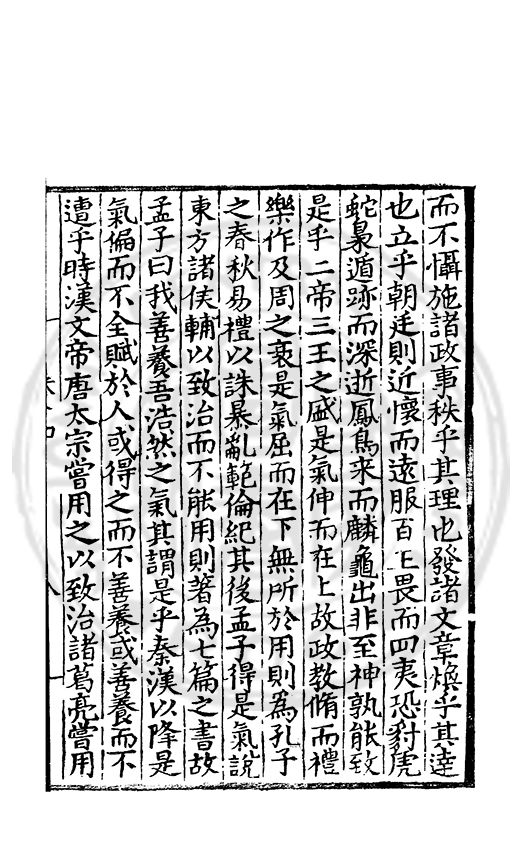 而不懾施諸政事秩乎其理也發諸文章煥乎其達
也立乎朝廷則近懷而遠服百王畏而四夷恐豺虎
蛇梟遁跡而深逝鳳鳥来而麟龜出非至神孰能致
是乎二帝三王之盛是氣伸而在上故政教脩而禮
樂作及周之衰是氣屈而在下無所於用則為孔子
之春秋易禮以誅暴亂範倫紀其後孟子得是氣說
東方諸侯輔以致治而不能用則著為七篇之書故
孟子曰我善養吾浩然之氣其謂是乎秦漢以降是
氣偏而不全賦於人或得之而不善養或善養而不
遭乎時漢文帝唐太宗嘗用之以致治諸葛亮嘗用